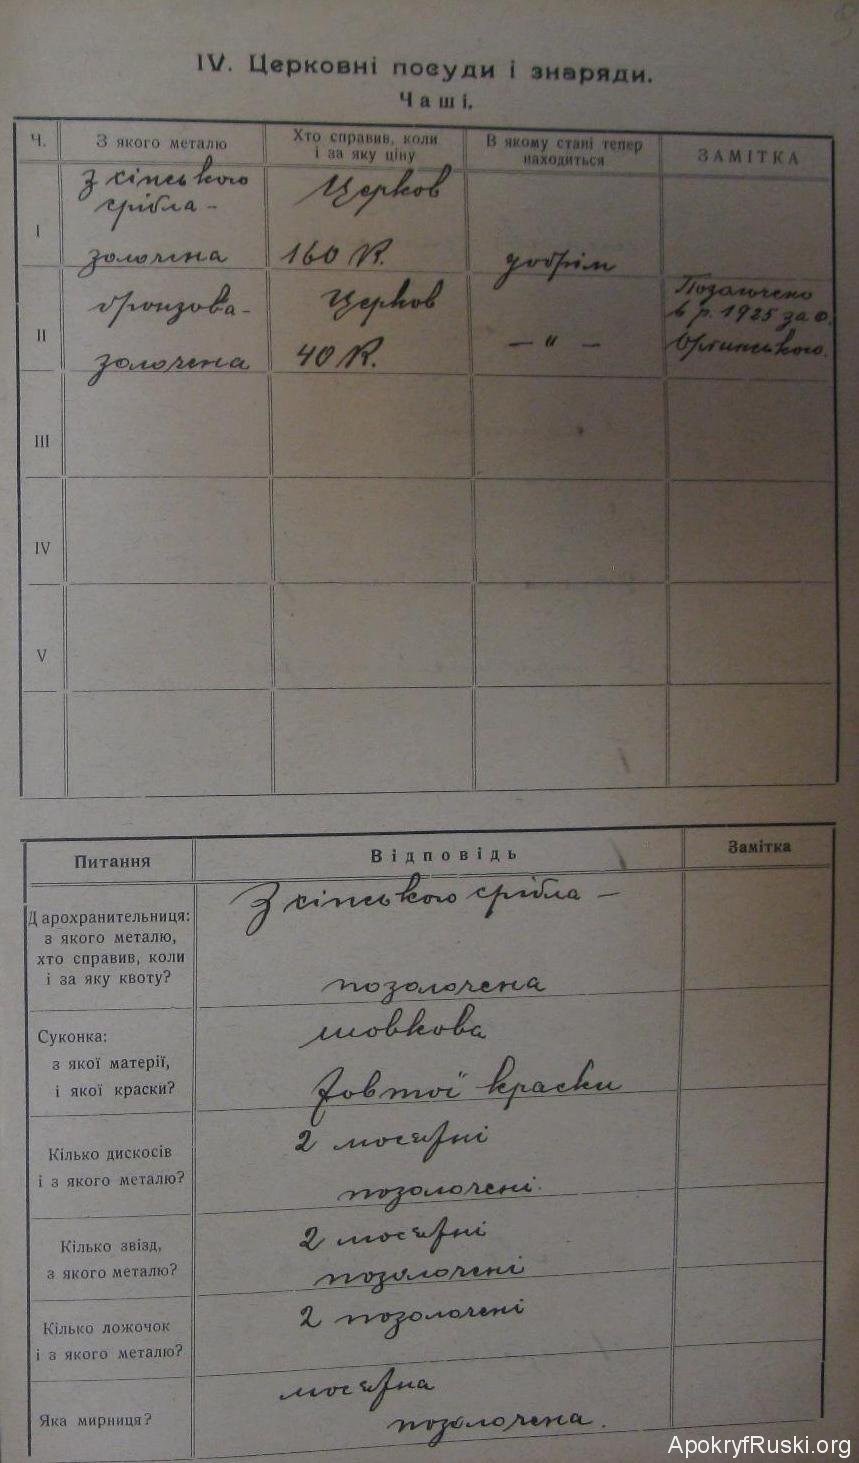 IV. Церковні посуди і знаряди.
Чаші.
Ч.
З якого металю
Хто справив, коли
і за яку ціну
В якому стані тепер
находиться
ЗАМІТКА
I
З хінського
срібла –
золочена
Церков
160 К.
добрім
II
бронзова –
золочена
Церков
40 К.
— " —
Позолочено
в р. 1925 за о.
III
IV
V
Питання
Відповідь
Замітка
Дарохранительниця:
з якого металю,
хто справив, коли
і за яку квоту?
З хінського срібла —
позолочена
Суконка:
з якої матерії,
і якої краски?
шовкова
жовтої краски
Кілько дискосів
і з якого металю?
2 мосяжні
позолочені
Кілько звізд,
з якого металю?
2 мосяжні
позолочені
Кілько ложочок
і з якого металю?
2 позолочені
Яка мирниця?
мосяжна
позолочена.
ApokryfRuski.org